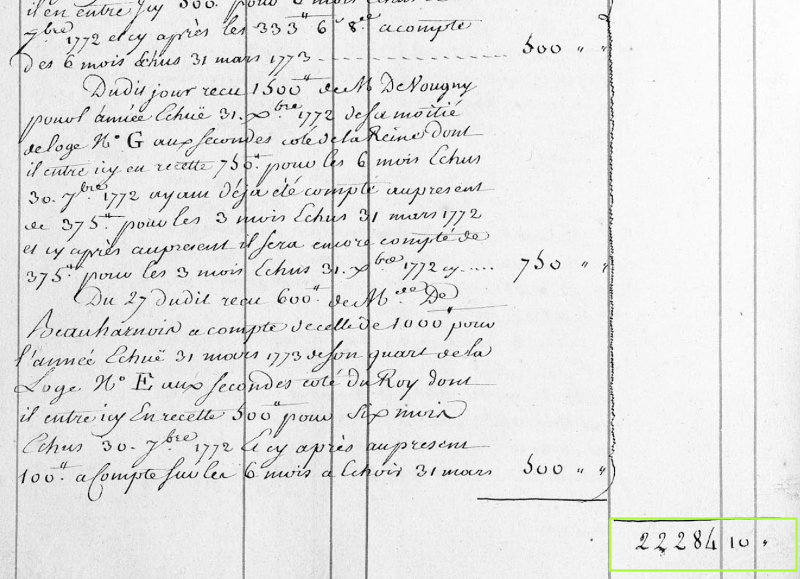 il en entre Icy 500.tt pour 6 mois Echus
7.bre 1772 et cy après les 333tt 6s 8.d acompte
des 6 mois Echus 31 mars 1773 - - - - - - 500 " "
Dudit jour recu 1500tt de M De Nougny
pour l'année Echuë 31. Xbre 1772 de sa moitié
de loge N.o G aux secondes coté de la Reine dont
il entre icy en recette 750.tt pour les 6 mois Echus
30. 7.bre 1772 ayant déja été compté aupresent
de 375.tt pour les 3 mois Echus 31 mars 1772
et cy après aupresent il sera encore compté de
375.tt pour les 3 mois Echus 31. Xbre 1772 cy ..... 750 " "
Du 27 dudit recu 600tt de M.de De
Beauharnois a compte de celle de 1000tt pour
l'année Echuë 31 mars 1773 de son quart de la
Loge N.o E aux secondes coté du Roy dont
il entre icy En recette 500tt pour Six mois
Echus 30. 7.bre 1772 Et cy après aupresent
100.tt a Compte sur les 6 mois a Echoir 31 mars 500 " "
22284 10 "